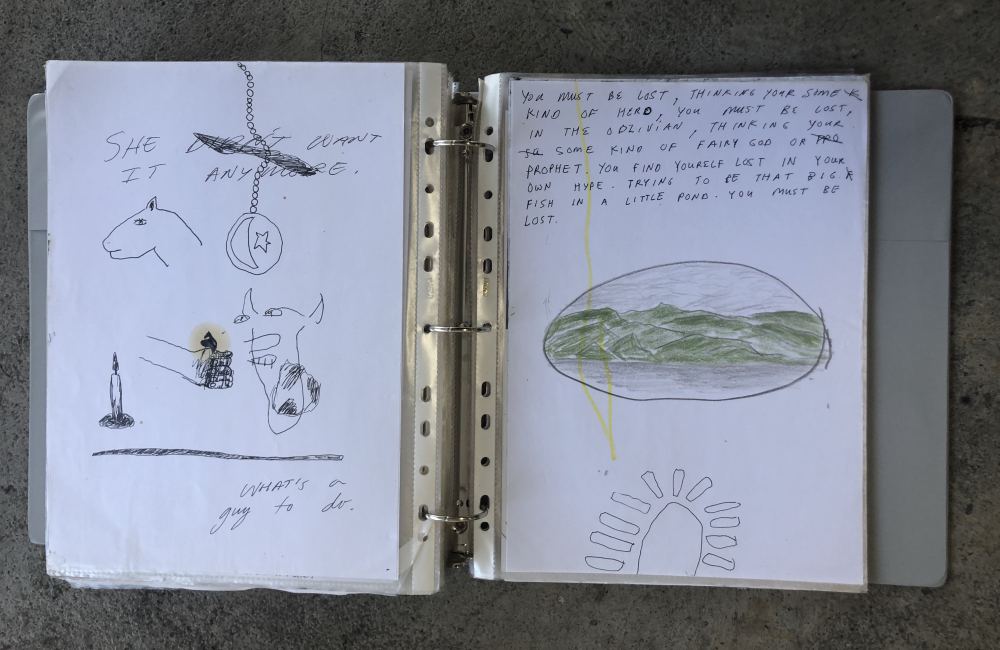 SHE DON'T WANT
IT ANYMORE.
WHAT'S a
guy to do.
YOU MUST BE LOST, THINKING YOUR SOME
KIND OF HERO, YOU MUST BE LOST,
IN THE OBLIVIAN, THINKING YOUR
SO SOME KIND OF FAIRY GOD OR PRO
PROPHET. YOU FIND YOURSELF LOST IN YOUR
OWN HYPE. TRYING TO BE THAT BIG
FISH IN A LITTLE POND. YOU MUST BE
LOST.